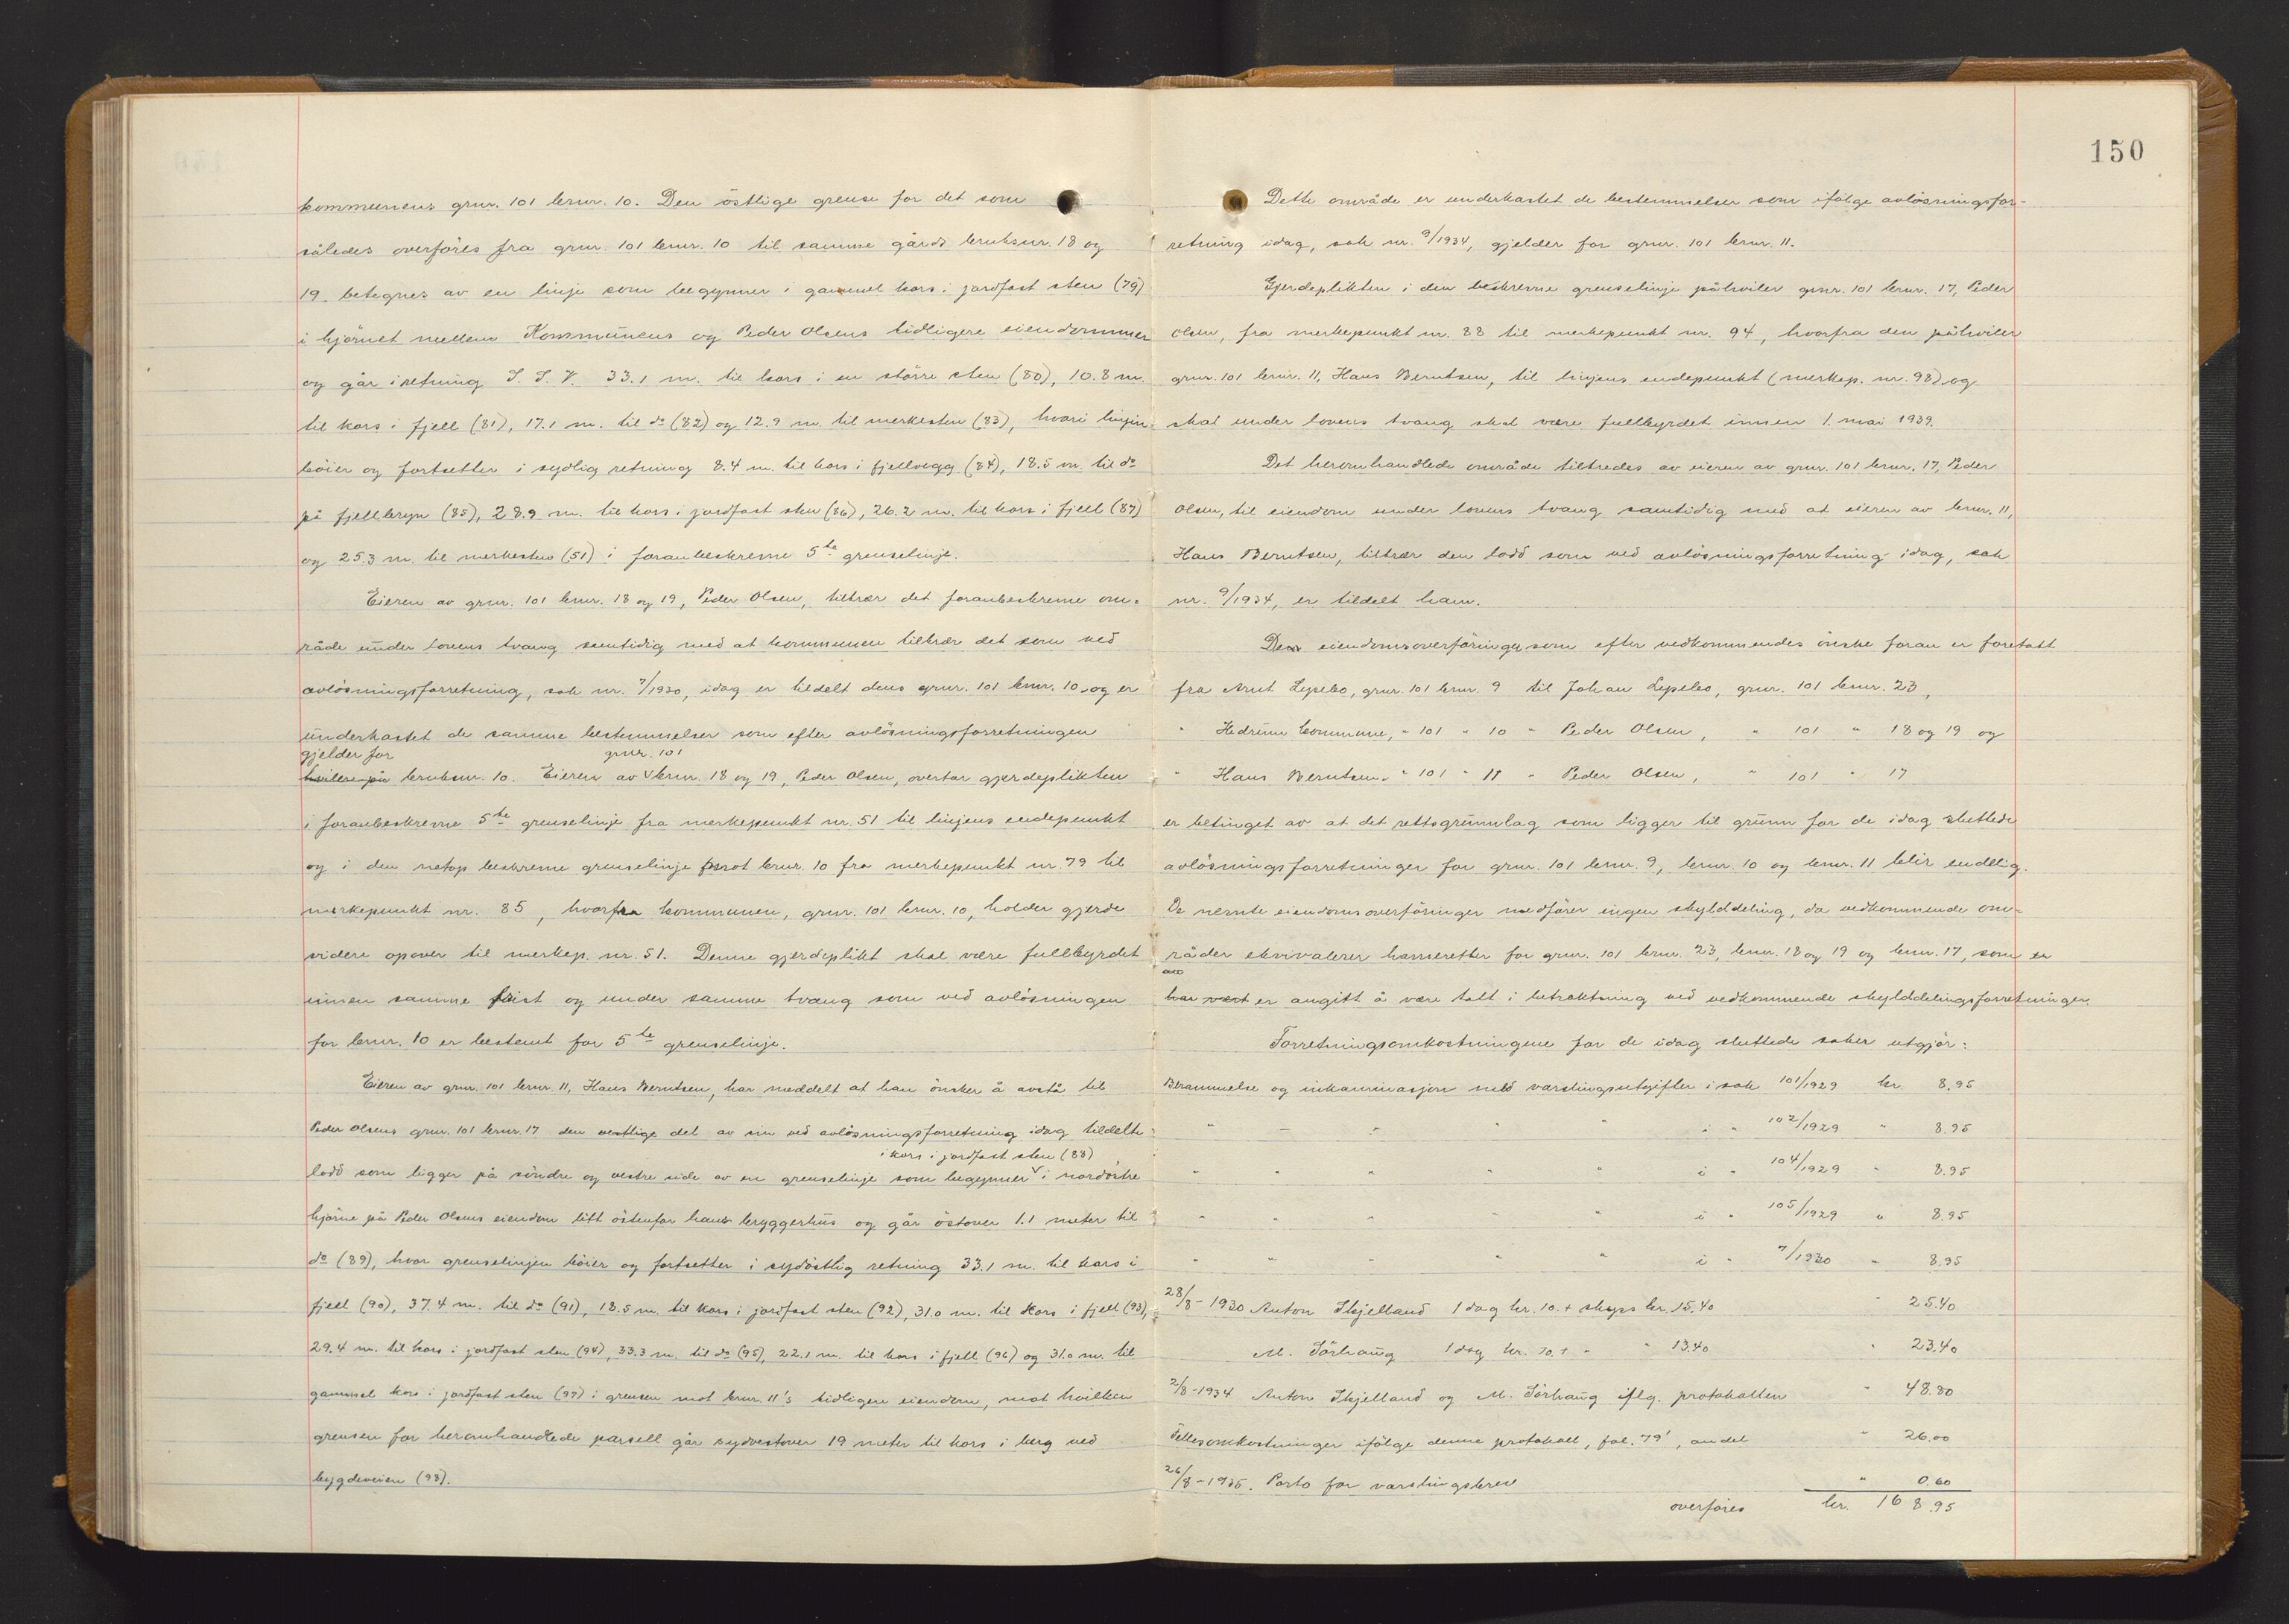 kommunens grnr. 101 brnr. 10. Den östlige grense for det som
således overføres fra grnr. 101 brnr. 10 til samme gårds bruksnr. 18 og
19 betegnes av en linje som begynner i gammel kors i jordfast sten (79)
i hjörnet mellem Kommunens og Peder Olsens tidligere eiendommer
og går i retning S. S. V. 33.1 m. til kors i en större sten (80), 10.8 m.
til kors i fjell (81), 17.1 m. til do (82) og 12.9 m. til merkesten (83), hvori linjen
böier og fortsetter i sydlig retning 8.4 m. til kors i fjellvegg (84), 18.5 m. til do
på fjellbryn (85), 28.9 m. til kors i jordfast sten (86), 26.2 m. til kors i fjell (87)
og 25.3 m. til merkesten (51) i foranbeskrevne 5te grenselinje.
Eieren av grnr. 101 brnr. 18 og 19, Peder Olsen, tiltrær det foranbeskrevne om-
råde under lovens tvang samtidig med at kommunen tiltrær det som ved
avlösningsforretning, sak nr. 7/1930, idag er tildelt dens grnr. 101 brnr. 10 og er
underkastet de samme bestemmelser som efter avlösningsforretningen
gjelder for grnr. 101
hviler på bruksnr. 10. Eieren av brnr. 18 og 19, Peder Olsen, overtar gjerdeplikten
i foranbeskrevne 5te grenselinje fra merkepunkt nr. 51 til linjens endepunkt
og i den netop beskrevne grenselinje mot brnr. 10 fra merkepunkt nr. 79 til
merkepunkt nr. 85, hvorfra kommunen, grnr. 101 brnr. 10, holder gjerde
videre opover til merkep. nr. 51. Denne gjerdeplikt skal være fullbyrdet
innen samme frist og under samme tvang som ved avlösningen
for brnr. 10 er bestemt for 5te grenselinje.
Eieren av grnr. 101 brnr. 11, Hans Berntsen, har meddelt at han önsker å avstå til
Peder Olsens grnr. 101 brnr. 17 den vestlige del av sin ved avlösningsforretning idag tildelte
i kors i jordfast sten (88)
lodd som ligger på söndre og vestre side av en grenselinje som begynner i nordöstre
hjörne på Peder Olsens eiendom litt östenfor hans bryggerhus og går östover 1.1 meter til
do (89), hvor grenselinjen böier og fortsetter i sydöstlig retning 33.1 m. til kors i
fjell (90), 37.4 m. til do (91), 18.5 m. til kors i jordfast sten (92), 31.0 m. til kors i fjell (93),
29.4 m. til kors i jordfast sten (94), 33.3 m. til do (95), 22.1 m. til kors i fjell (96) og 31.0 m. til
gammel kors i jordfast sten (97) i grensen mot brnr. 11's tidligere eiendom, mot hvilken
grensen for heromhandlede parsell går sydvestover 19 meter til kors i berg ved
bygdeveien (98).
150
Dette område er underkastet de bestemmelser som ifölge avlösningsfor-
retning idag, sak nr. 9/1934, gjelder for grnr. 101 brnr. 11.
Gjerdeplikten i den beskrevne grenselinje påhviler grnr. 101 brnr. 17, Peder
Olsen, fra merkepunkt nr. 88 til merkepunkt nr. 94, hvorfra den påhviler
grnr. 101 brnr. 11, Hans Berntsen, til linjens endepunkt (merkep. nr. 98) og
skal under lovens tvang skal være fullbyrdet innen 1. mai 1939.
Det heromhandlede område tiltredes av eieren av grnr. 101 brnr. 17, Peder
Olsen, til eiendom under lovens tvang samtidig med at eieren av brnr. 11,
Hans Berntsen, tiltrær den lodd som ved avlösningsforretning idag, sak
nr. 9/1934, er tildelt ham.
De eiendomsoverföringer som efter vedkommendes önske foran er foretatt
fra Arnt Lysebo, grnr. 101 brnr. 9 til Johan Lysebo, grnr. 101 brnr. 23,
" Hedrum kommune, " 101 " 10 " Peder Olsen, " 101 " 18 og 19 og
" Hans Berntsen " 101 " 11 " Peder Olsen, " 101 " 17
er betinget av at det rettsgrunnlag som ligger til grunn for de idag sluttede
avlösningsforretninger for grnr. 101 brnr. 9, brnr. 10 og brnr. 11 blir endelig.
De nevnte eiendomsoverföringer medförer ingen skylddeling, da vedkommende om-
råder ekvivalerer havneretter for grnr. 101 brnr. 23, brnr. 18 og 19 og brnr. 17, som er
har vært er angitt å være tatt i betraktning ved vedkommende skylddelingsforretninger.
Forretningsomkostningene for de idag sluttede saker utgjör:
Berammelse og inkaminasjon med varslingsutgifter i sak 101/1929 kr. 8.95
" " " " " i " 102/1929 " 8.95
" " " " " i " 104/1929 " 8.95
" " " " " i " 105/1929 " 8.95
" " " " " i " 7/1930 " 8.95
28/8-1930 Anton Skjelland 1 dag kr. 10.+ skyss kr. 15.40 " 25.40
M. Sörhaug 1 dag kr. 10.+ " " 13.40 " 23.40
2/8-1934 Anton Skjelland og M. Sörhaug iflg. protokollen " 48.80
Fellesomkostninger ifölge denne protokoll, fol. 79', andel " 26.00
26/8-1935. Porto for varslingsbrev " 0.60
overföres kr. 168.95